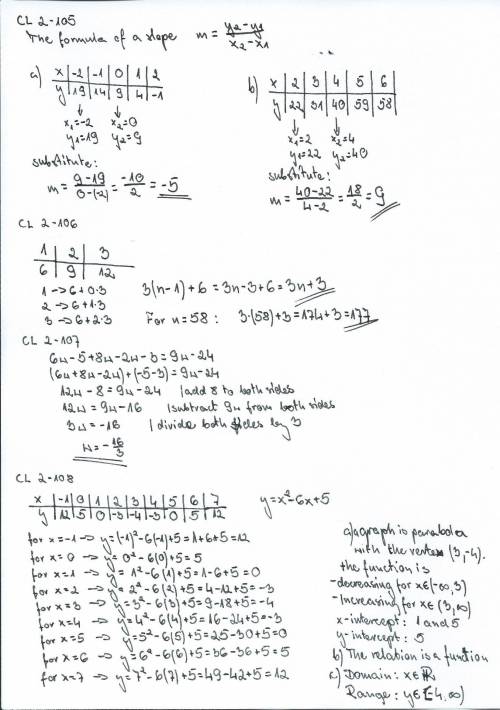 CL 2-105
The formula of a slope m = (y₂-y₁)/(x₂-x₁)
a) x | -2 | -1 | 0 | 1 | 2
y | 19 | 14 | 9 | 4 | -1
x₁=-2 x₂=0
y₁=19 y₂=9
substitute:
m = (9-19)/(0-(-2)) = -10/2 = -5
b) x | 2 | 3 | 4 | 5 | 6
y | 22 | 31 | 40 | 59 | 58
x₁=2 x₂=4
y₁=22 y₂=40
substitute:
m = (40-22)/(4-2) = 18/2 = 9
CL 2-106
1 | 2 | 3
6 | 9 | 12
1 → 6+0·3 3(n-1)+6 = 3n-3+6 = 3n+3
2 → 6+1·3
3 → 6+2·3 For n=58: 3·(58)+3=174+3=177
CL 2-107
6w-5+8w-2w-3=9w-24
(6w+8w-2w)+(-5-3)=9w-24
12w-8=9w-24 |add 8 to both sides
12w=9w-16 |subtract 9w from both sides
3w=-16 |divide both sides by 3
w=-16/3
CL 2-108
x | -1 | 0 | 1 | 2 | 3 | 4 | 5 | 6 | 7
y | 12 | 5 | 0 | -3 | -4 | -3 | 0 | 5 | 12
y=x²-6x+5
for x=-1 → y=(-1)²-6(-1)+5=1+6+5=12
for x=0 → y=0²-6(0)+5=5
for x=1 → y=1²-6(1)+5=1-6+5=0
for x=2 → y=2²-6(2)+5=4-12+5=-3
for x=3 → y=3²-6(3)+5=9-18+5=-4
for x=4 → y=4²-6(4)+5=16-24+5=-3
for x=5 → y=5²-6(5)+5=25-30+5=0
for x=6 → y=6²-6(6)+5=36-36+5=5
for x=7 → y=7²-6(7)+5=49-42+5=12
a) graph is parabola
with the vertex (3,-4).
the function is
-decreasing for x∈(-∞,3)
-increasing for x∈(3,∞)
x-intercept: 1 and 5
y-intercept: 5
b) The relation is a function
c) Domain: x∈ℝ
Range: y∈[-4,∞)